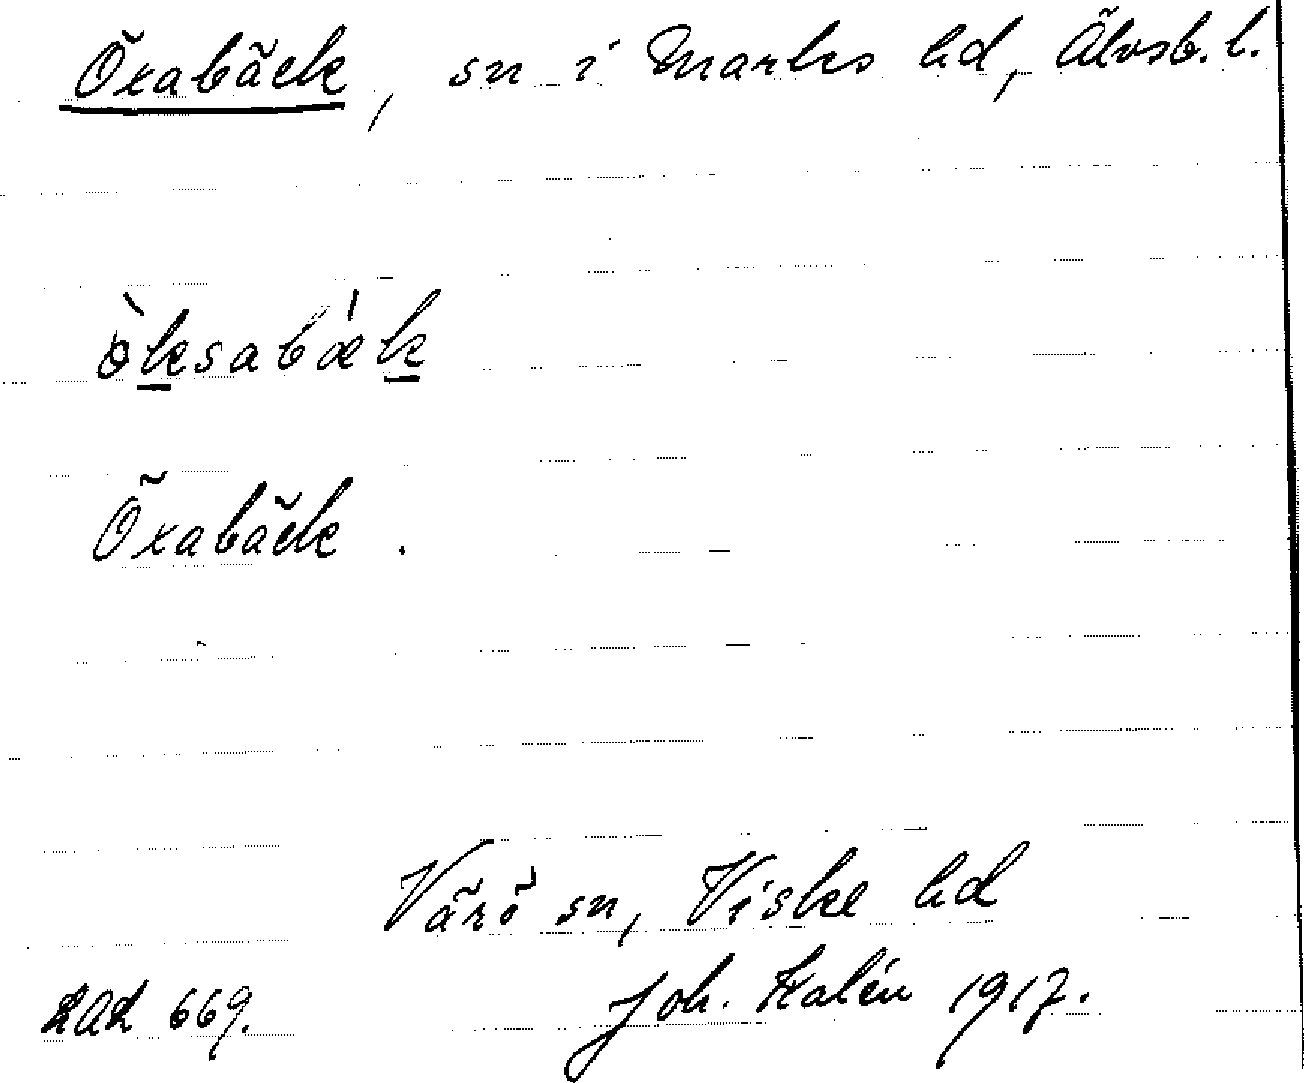 Öxabäck, sn i Marks hd, Älvsb. l.
òksabæ̍k
Öxabäck.
Värö sn, Viske hd
LAL 669. Joh. Kalén 1917.